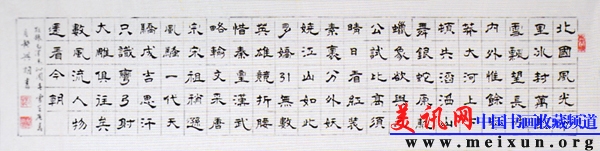 北國風光
里冰封萬
雪飄望長
内外惟餘
莽大河上
頓失滔
舞銀蛇原馳
蠟象欲與天
公試比高須
晴日看紅裝
素裹分外妖
嬈江山如此
多嬌引無數
英雄競折腰
惜秦皇漢武
略輸文采唐
宋祖稍遜
風騷一代天
驕成吉思汗
只識彎弓射
大雕俱往矣
數風流人物
還看今朝
美讯网
中国书画收藏频道
www.meixun.org